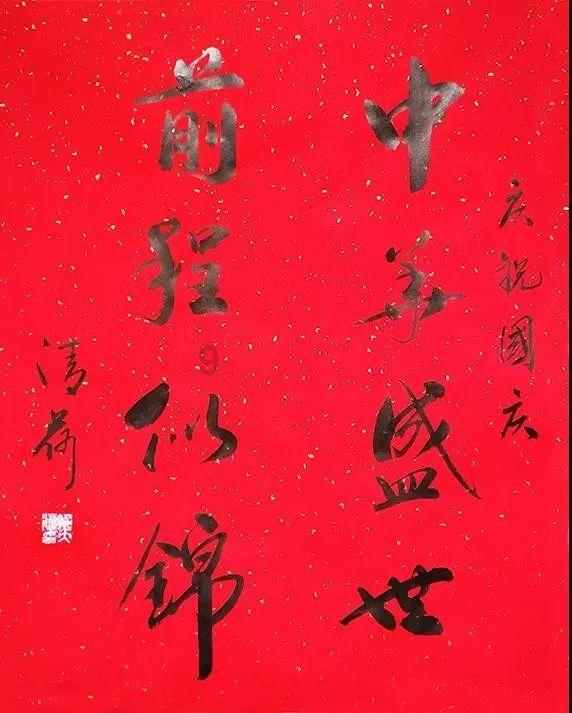 庆祝國庆
中华盛世
前程似錦
清荷
9